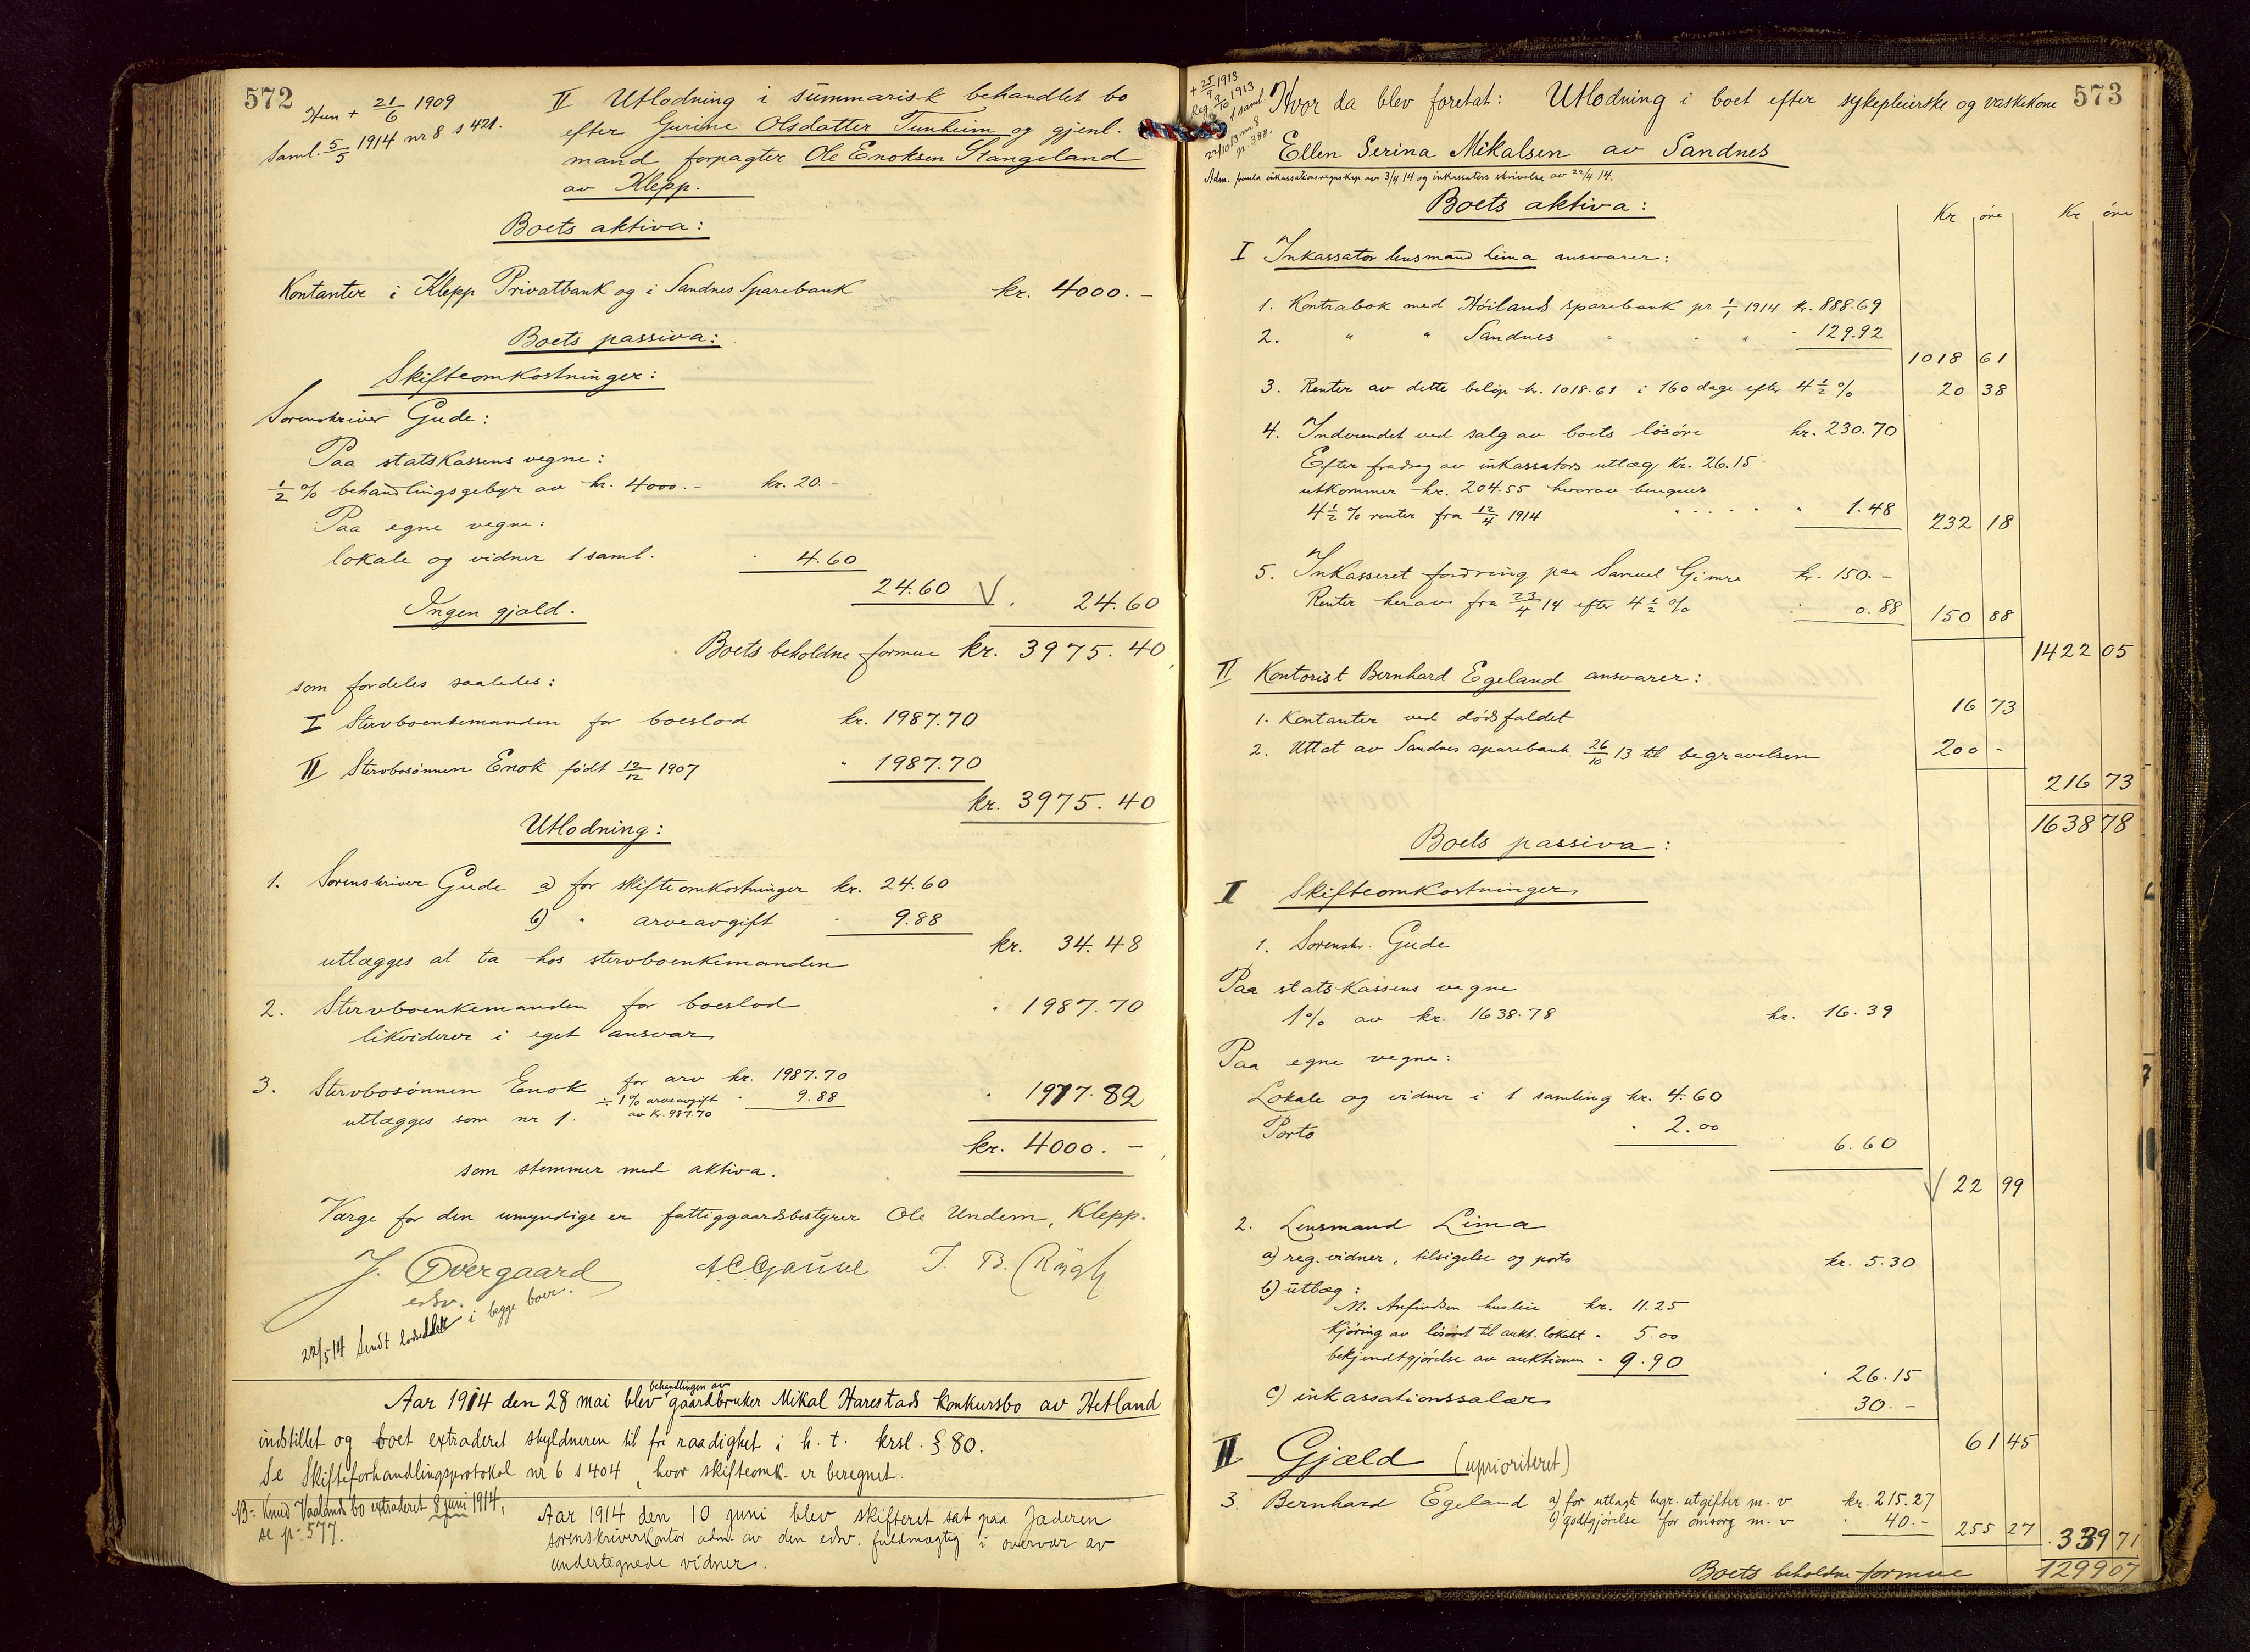 572
Hun + 21/6 1909
Saml. 5/5 1914 nr 8 s 421.
II Utlodning i summarisk behandlet bo
efter Gurine Olsdatter Tunheim og gjenl.
mand forpagter Ole Enoksen Stangeland
av Klepp.
Boets aktiva:
Kontanter i Klepp Privatbank og i Sandnes Sparebank kr. 4000.-
Boets passiva:
Skifteomkostninger:
Sorenskriver Gude:
Paa statskassens vegne:
1/2 % behandlingsgebyr av kr. 4000.- kr. 20.-
Paa egne vegne:
lokale og vidner 1 saml. " 4.60
24.60 √ . 24.60
Ingen gjæld.
Boets beholdne formue kr. 3975.40
som fordeles saaledes:
I Stervboenkemanden for boeslod kr. 1987.70
II Stervbosønnen Enok født 12/12 1907 " 1987.70
kr. 3975.40
Utlodning:
1. Sorenskriver Gude a) for skifteomkostninger kr. 24.60
b) " arveavgift " 9.88
kr. 34.48
utlægges at ta hos stervboenkemanden
2. Stervboenkemanden for boeslod " 1987.70
likviderer i eget ansvar
3. Stervbosønnen Enok for arv kr. 1987.70
÷ 1% arveavgift " 9.88 " 1977.82
av kr. 987.70
utlægges som nr 1.
kr. 4000.-
som stemmer med aktiva.
Værge for den umyndige er fattiggaardsbestyrer Ole Undem, Klepp.
J. Overgaard
edsv.
A C Gause J. B. Rügh
22/5 14 Sendt lodseddeler i begge boer.
Aar 1914 den 28 mai blev behandlingen av gaardbruker Mikal Harestads konkursbo av Hetland
indstillet og boet extraderet skyldneren til fri raadighet i h. t. krsl. § 80.
Se Skifteforhandlingsprotokol nr 6 s 404, hvor skifteomk. er beregnet.
NB- Knud Vaalands bo extraderet 8 juni 1914,
se p- 577.
Aar 1914 den 10 juni blev skifteret sat paa Jæderen
sorenskriverkontor adm. av den edsv. fuldmægtig i overvær av
undertegnede vidner.
573
+ 25/9 1913
Reg. 9/10 1913
1 saml
22/10 13 nr 8
p. 388.
Hvor da blev foretat: Utlodning i boet efter sykepleierske og vaskekone
Ellen Serina Mikalsen av Sandnes
Adm. fremla inkassationsregnskap av 3/4 14 og inkassators skrivelse av 22/4 14.
Boets aktiva:
Kr øre Kr øre
I Inkassator lensmand Lima ansvarer:
1. Kontrabok med Höilands sparebank pr 1/1 1914 kr. 888.69
2. " " Sandnes " " " " 129.92
1018 61
3. Renter av dette beløp kr. 1018.61 i 160 dage efter 4 1/2 % 20 38
4. Indvundet ved salg av boets løsøre kr. 230.70
Efter fradrag av inkassators utlæg kr. 26.15
utkommer kr. 204.55 hvorav beregnes
4 1/2 % renter fra 12/4 1914 " 1.48 232 18
5. Inkasseret fordring paa Samuel Gimre kr. 150.-
Renter herav fra 23/4 14 efter 4 1/2 % " 0.88 150 88
1422 05
II Kontorist Bernhard Egeland ansvarer:
1. Kontanter ved dødsfaldet 16 73
2. Uttat av Sandnes sparebank 26/10 13 til begravelsen 200 -
216 73
1638 78
Boets passiva:
I Skifteomkostninger
1. Sorenskr. Gude
Paa statskassens vegne
1% av kr. 1638.78 kr. 16.39
Paa egne vegne:
Lokale og vidner i 1 samling kr. 4.60
Porto " 2.00
" 6.60
√ 22 99
2. Lensmand Lima
a) reg. vidner, tilsigelse og porto kr. 5.30
b) utlæg:
M. Anfindsen husleie kr. 11.25
Kjøring av løsøret til aukt. lokalet " 5.00
bekjendtgjørelse av auktionen " 9.90
" 26.15
c) inkassationssalær 30.-
61 45
II Gjæld (uprioriteret)
3. Bernhard Egeland a) for utlagte begr. utgifter m. v. kr. 215.27
b) godtgjørelse for omsorg m. v " 40.- 255 27 . 339 71
Boets beholdne formue 1299 07